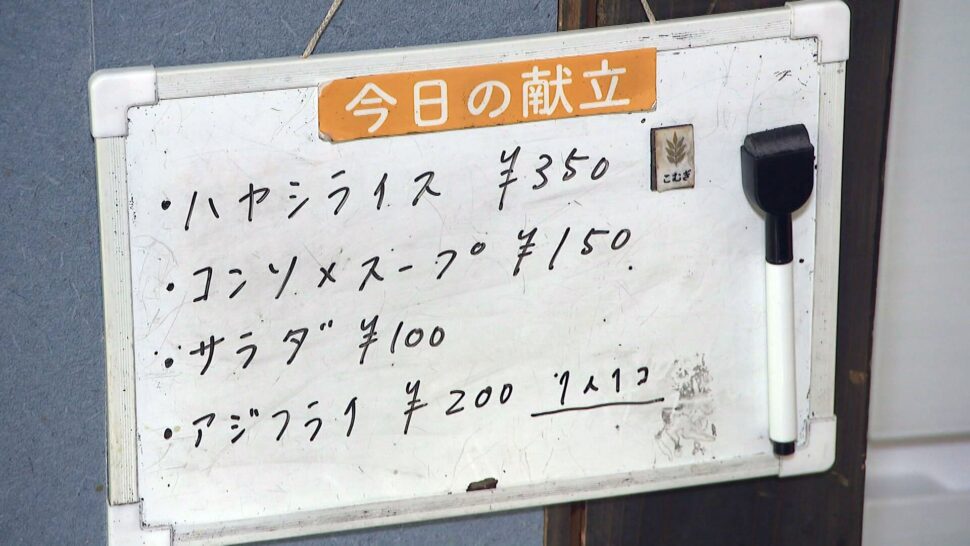 今日の献立
・ハヤシライス ¥350
こむぎ
・コンソメスープ ¥150
・サラダ ¥100
・アジフライ ¥200 1人1コ